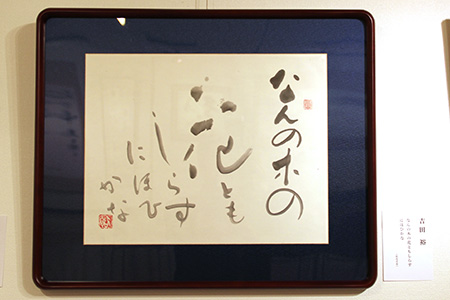 なんの木の
花とも
しらす
にほひ
かな
吉田 裕
なんの木の花ともしらず
にほひかな